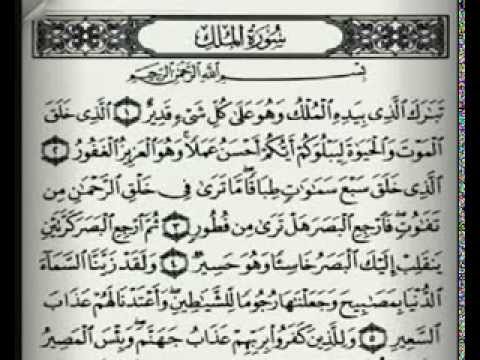 سُورَةُ المُلْكِ
بِسْمِ اللَّهِ الرَّحْمَٰنِ الرَّحِيمِ
تَبَٰرَكَ ٱلَّذِى بِيَدِهِ ٱلْمُلْكُ وَهُوَ عَلَىٰ كُلِّ شَىْءٍ قَدِيرٌ ١ ٱلَّذِى خَلَقَ
ٱلْمَوْتَ وَٱلْحَيَوٰةَ لِيَبْلُوَكُمْ أَيُّكُمْ أَحْسَنُ عَمَلًا وَهُوَ ٱلْعَزِيزُ ٱلْغَفُورُ ٢
ٱلَّذِى خَلَقَ سَبْعَ سَمَٰوَٰتٍ طِبَاقًا مَّا تَرَىٰ فِى خَلْقِ ٱلرَّحْمَٰنِ مِن
تَفَٰوُتٍ فَٱرْجِعِ ٱلْبَصَرَ هَلْ تَرَىٰ مِن فُطُورٍ ٣ ثُمَّ ٱرْجِعِ ٱلْبَصَرَ كَرَّتَيْنِ
يَنقَلِبْ إِلَيْكَ ٱلْبَصَرُ خَاسِئًا وَهُوَ حَسِيرٌ ٤ وَلَقَدْ زَيَّنَّا ٱلسَّمَآءَ
ٱلدُّنْيَا بِمَصَٰبِيحَ وَجَعَلْنَٰهَا رُجُومًا لِّلشَّيَٰطِينِ وَأَعْتَدْنَا لَهُمْ عَذَابَ
ٱلسَّعِيرِ ٥ وَلِلَّذِينَ كَفَرُوا۟ بِرَبِّهِمْ عَذَابُ جَهَنَّمَ وَبِئْسَ ٱلْمَصِيرُ